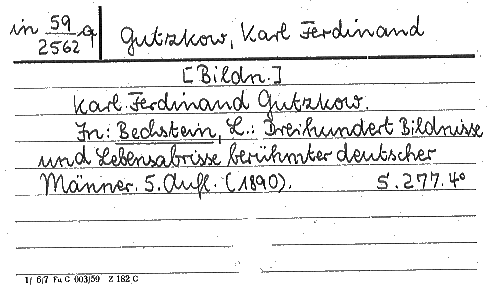 in 59/2562 q Gutzkow, Karl Ferdinand
[Bildn.]
Karl Ferdinand Gutzkow.
In: Bechstein, L.: Dreihundert Bildnisse
und Lebensabrisse berühmter deutscher
Männer. 5. Aufl. (1890). S. 277. 4°
1/ 6/7 Fu G 003/59 Z 182 C